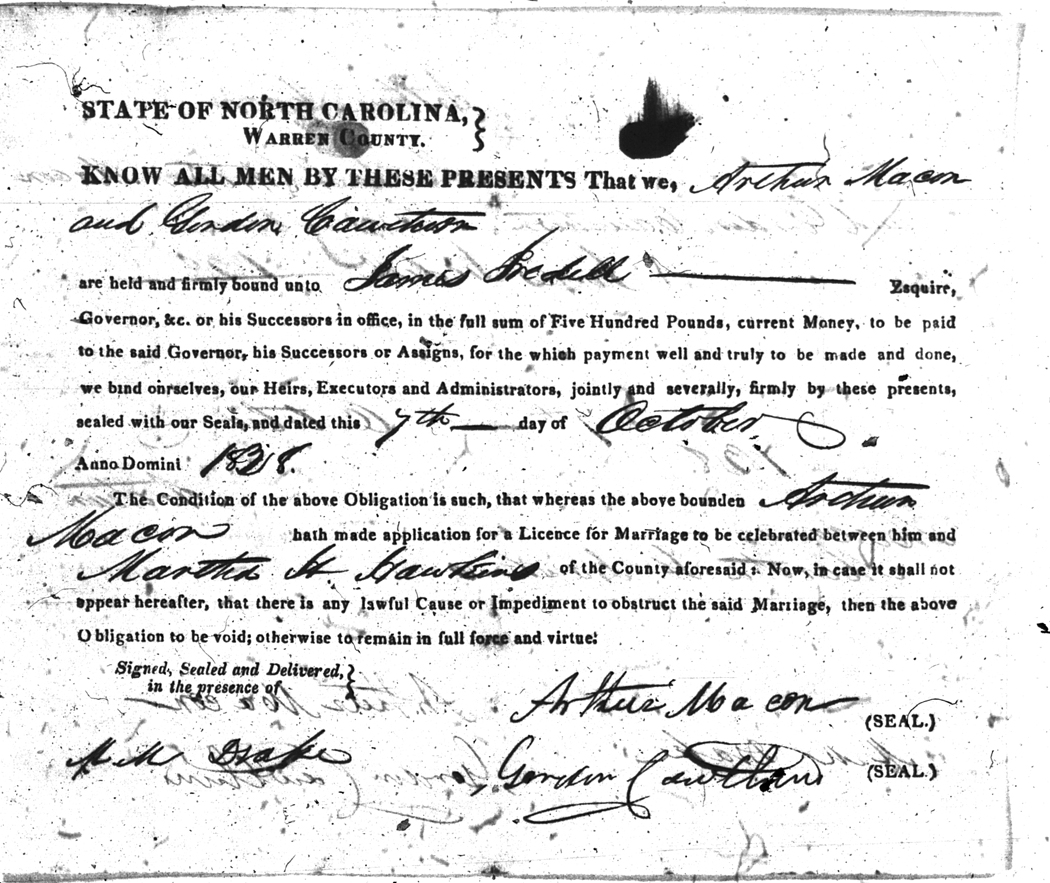 STATE OF NORTH CAROLINA,
WARREN COUNTY.
KNOW ALL MEN BY THESE PRESENTS That we, Arthur Macon
and Gordon Cawthorn
are held and firmly bound unto James Iredell Esquire,
Governor, &c. or his Successors in office, in the full sum of Five Hundred Pounds, current Money, to be paid
to the said Governor, his Successors or Assigns, for the which payment well and truly to be made and done,
we bind ourselves, our Heirs, Executors and Administrators, jointly and severally, firmly by these presents,
sealed with our Seals, and dated this 7th day of October
Anno Domini 1828.
The Condition of the above Obligation is such, that whereas the above bounden Arthur
Macon hath made application for a Licence for Marriage to be celebrated between him and
Martha H Hawkins of the County aforesaid: Now, in case it shall not
appear hereafter, that there is any lawful Cause or Impediment to obstruct the said Marriage, then the above
Obligation to be void; otherwise to remain in full force and virtue.
Signed, Sealed and Delivered,
in the presence of
Arthur Macon (SEAL.)
M M Drake Gordon Cawthorn (SEAL.)